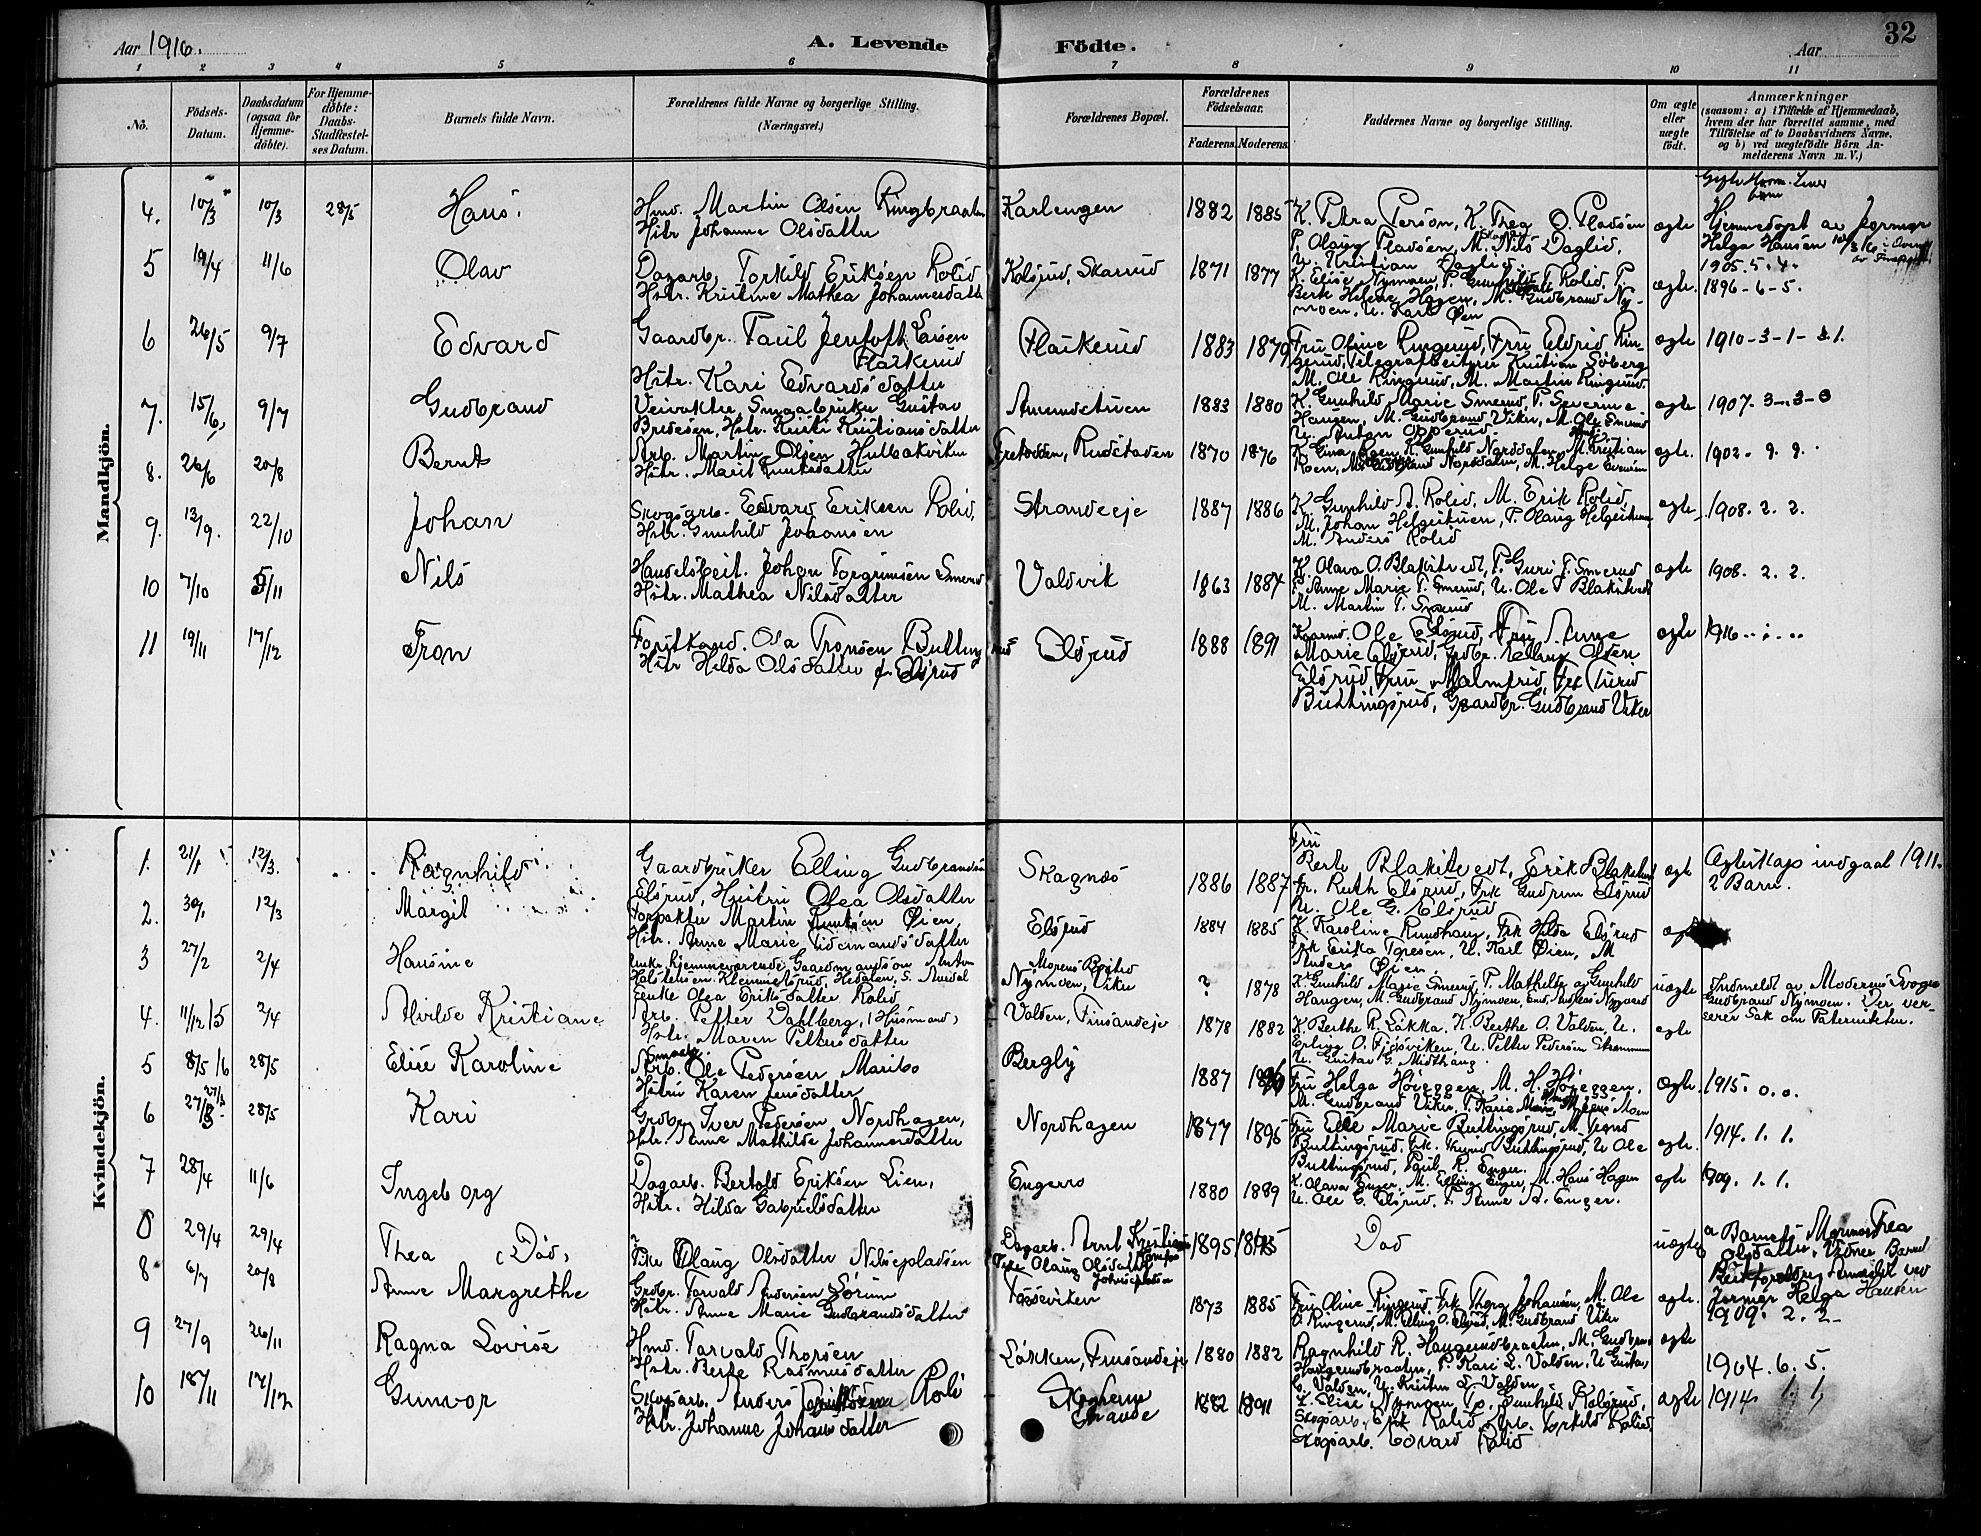 Aar 1916.
A. Levende Födte.
Aar
32
1 2 3 4 5 6 7 8 9 10 11
No.
Födsels-
Datum.
Daabsdatum
(ogsaa for
Hjemme-
döbte).
For Hjemme-
döbte:
Daabs-
Stadfæstel-
ses Datum.
Barnets fulde Navn.
Forældrenes fulde Navne og borgerlige Stilling.
(Næringsvei.)
Forældrenes Bopæl.
Forældrenes
Födselsaar.
Faderens. Moderens.
Faddernes Navne og borgerlige Stilling.
Om ægte
eller
uægte
født.
Anmærkninger
(saasom: a) i Tilfælde af Hjemmedaab,
hvem der har forrettet samme, med
Tilföielse af to Daabsvidners Navne,
og b) ved uægtefödte Börn An-
melderens Navn m. V.)
Mandkjön.
4. 10/3 10/3 28/5 Hans.
Hmd. Martin Olsen Ringbraaten
Hstr Johanne Olsdatter
Karlengen 1882 1885
K. Petra Person, K. Trea O. Pladsen
P. Olaug Pladsen, M. Nils Daglid,
U. Kristian Daglid
ægte
Hjemmedøpt av Jormor
Helga Hansen
5 19/4 11/6 Olav
Dagarb. Torkild Eriksen Rolid
Hstr. Kristine Mathea Johannesdatter
Kolsrud, Skarrud 1871 1877
K. Elise Nymoen, P. Gunhild Rolid, P.
Berte Helene Hagen, M. Gudbrand Ny-
moen, U. Karl Øen
ægte.
1905. 5. 4.
1896-6-5.
6 26/5 9/7 Edvard
Gaardbr. Paul Jentoft Larsen
Flaskerud
Hstr. Kari Edvardsdatter
Flaskerud 1883 1879
Fru Oline Ringerud, Fru Eldrid Rin-
gerud, Telegrafbestyrer Kristian Søberg
M. Ole Ringerud, M. Martin Ringerud.
ægte 1910-3-1-
7. 15/6 9/7 Gudbrand
Veivokter Smaabruker Gustav
Bredesen, Hstr. Kristi Kristiansdatter
Amundstuen 1883 1880
K. Gunhild Marie Smerud, P. Severine
Hansen, M. Gudbrand Viker, M. Ole Smerud
U. Anton Opperud
ægte 1907. 3-3-0
8. 26/6 20/8 Bernt
Arb. Martin Olsen Hulbakviken
Hstr. Marit
1870 1876
Gunhild Norddalen, M. Kristian
Roen, M. Norddalen, M. Helge
ægte. 1902. 9. 9.
9. 13/9. 22/10 Johan
Skogsarb. Edvard Eriksen Rolid,
Hstr. Gunhild Johansen
Strandeeje 1887 1886
K. Gunhild A. Rolid, M. Erik Rolid,
M. Johan Helgestuen, P. Olaug Helgestuen
M. Anders Rolid
ægte 1908. 2. 2.
10 7/10 5/11 Nils
Handelsbest. Johan Torgrimsen Smerud
Hstr. Mathea Nilsdatter
Valdvik 1863 1884
K. Olava O. Blakstvedt, P. Guri T. Smerud
P. Anne Marie T. Smerud, U. Ole Blakstvedt
M. Martin T. Smerud
ægte 1908. 2. 2.
11 19/11 17/12 Tron
Forstkand. Ola Tronsen Bulling
Hstr Hilda Olsdatter f. Elsrud
Elsrud 1888 1891
Ole Elsrud, Fru Anne
Marie Elsrud, Grdbr. Elling Olsen
Elsrud, Fru Malmfrid, Frk Turid
Bullingsrud, Gaardbr. Gudbrand Viker
ægte 1916
Kvindekjön.
1. 21/1 12/3. Ragnhild
Gaardbruker Elling Gudbrandsen
Elsrud, Hustru Olea Olsdatter
Skagnæs 1886 1887
Fru
Berte Blakstvedt, Erik Blakstvedt
fr. Ruth Elsrud, Frk Gudrun Elsrud
U. Ole G. Elsrud
ægte
Ægteskap indgaat 1911.
2 Barn.
2. 30/1 12/3 Margit
Forpakter Martin Øien,
Hstr. Anne Marie Tidemandsdatter
Elsrud 1884 1885
K. Karoline Rundhaug, Frk Hilda Elsrud
Frk Erika Toresen, U. Karl Øien, M
Anders Øien
3 27/2 2/4 Hansine
Unkr. hjemmeværende Gaardmandssøn Anton
Halstensen Klemmetsrud, Hedalen, S. Aurdal
Enke Olea Eriksdatter Rolid
Morens Bosted
Nymoen, Viker ? 1878
K. Gunhild Marie Smerud, P. Mathilde og Gunhild
Haugen, M. Gudbrand Nymoen, Nygaard
uægte
Indmeldt av Moderens Svoger
Gudbrand Nymoen. Der ver-
serer Sak om Paterniteten.
4. 11/12 15 2/4 Alvilde Kristiane
Arb. Petter Dahlberg, (Husmand)
Hstr. Maren Pettersdatter
Valden, Finsandeje 1878 1882
K. Berthe R. Løkka, K. Berthe O. Valden, U.
Erling O. Fjøsviken, U. Petter Pedersen
U. Gustav G. Midthaug.
egte
5 8/5 16 28/5 Elise Karoline
Arb. Ole Pedersen Maribo
Hustru Karen Jensdatter
Bergly 1887
Fru Helga Høieggen, M. H. Høieggen.
M. Gudbrand Viker,
Ægte. 1915. 0. 0.
6 27/3. 28/5 Kari
Grdbr. Iver Pedersen Nordhagen,
Hstr. Anne Mathilde Johannesdatter
Nordhagen 1877 1895
Fru Elle Marie Bullingsrud, M. Trond
Bullingsrud, Frk. Turid Bullingsrud, U Ole
Bullingsrud, Paul R. Enger.
ægte. 1914. 1. 1.
7 28/4 11/6 Ingeborg
Dagarb. Bertold Eriksen Lien,
Hstr. Hilda Gabrielsdatter
Engerrs 1880 1889
K. Olava Enger, M. Elling Enger, M. Hans Hagen
U. Ole G. Elsrud, P. Anne A. Enger.
egte 1909. 1. 1.
8 29/4 29/4 Thea (Død)
Pike Olaug Olsdatter Nilsepladsen
Dagarb. Arnt Kristians
Pike Olaug Olsdatter
1895
Død
uægte
a Barnets Mormor Trea
Olsdatter, Vidner Barnets
Besteforeldre, Anmeldt ved
Jormor Helga Hansen
8 6/7 20/8 Anne Margrethe
Grdbr. Torvald Andersen Sørum
Hstr. Anne Marie Gudbrandsdatter
Fosseviken 1873 1885
Fru Oline Ringerud, Frk Thora Johansen, M. Ole
O. Ringerud, M. Elling O. Elsrud, M. Gudbrand Viker
ægte. 1909. 2. 2
9 27/9 26/11 Ragna Lovise
Hmd. Torvald Thorsen
Hstr. Berte Rasmusdatter
Løkken, Finsandeje 1880 1882
Ragnhild R. Haugerudbraaten, M. Gudbrand
Haugerudbraaten, P. Kari L. Valden, U Gustav
L. Valden, U. Kristen L. Valden
ægte
1904. 6. 5.
10 18/11 17/12 Gunvor
Skogsarb. Anders Rolid
Hstr. Johanne Johansdatter
Skoghem
Strande 1882 1891
K. Elise Nymoen, P. Gunhild Kolsrud,
Skogsarb. Erik Rolid, Arb. Torkild Rolid
Skogsarb. Edvard Rolid
ægte 1914 1. 1.